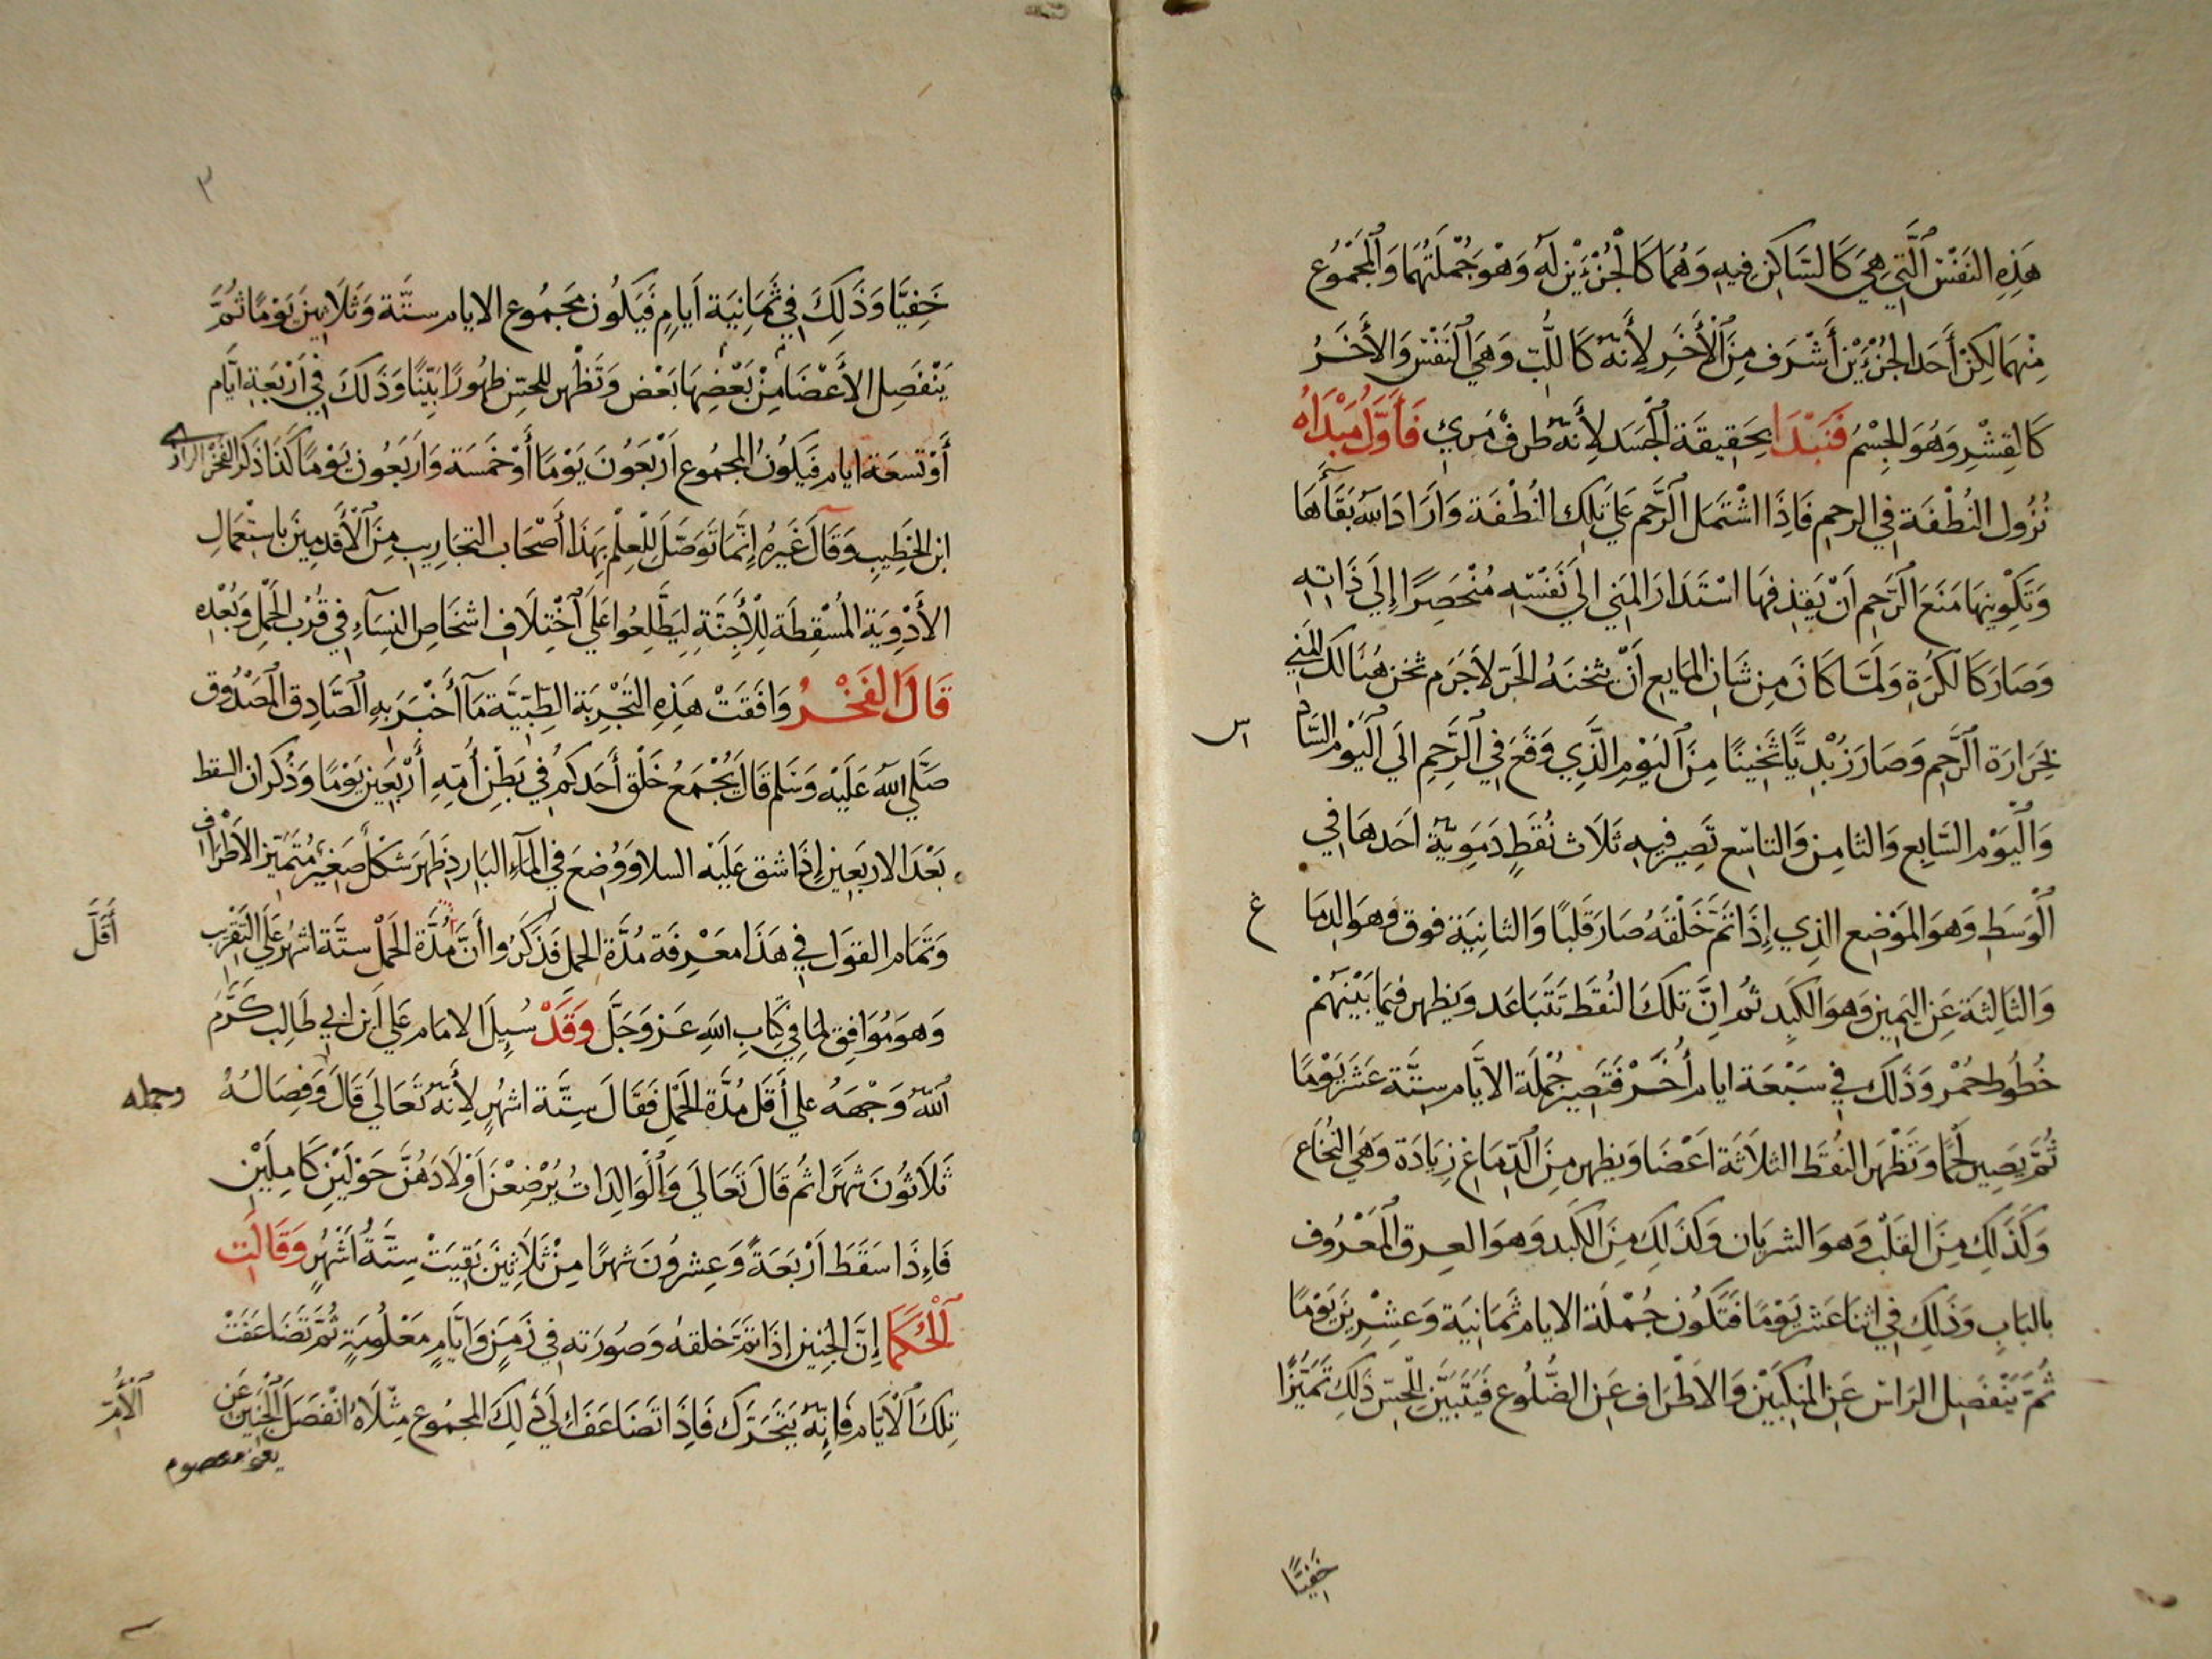 هَذِهِ النَفَسْ ٱلَّتِي هِيَ كَالسَّاكِن فِيهِ وَهُمَا كَالجُزْءَيْن لَهُ وَهْوَ جُمْلَتُهُمَا وَٱلْمَجْمُوع
مِنْهمَا لكِنْ أَحَد الجُزْءَيْن أَشْرَف مِنَ ٱلْأَخَرِ لِأَنَّهُ كَاللُّبّ وَهَيَ ٱلنَفْس وَالأَخَرُ
كَالقِشْرِ وَهُوَ الجِسْمُ فَنَبْدَا بِحَقِيقَة الْجَسَد لِأَنَّهُ طرفْ مَرِي فَأَوَّلُ مَبْدَاهُ
نُزُول النُطْفَة فِي الرحِم فَاِذَا اشْتَمَل ٱلرَّحِم عَلَي تَلِكَ النُطْفَة وَاَرَادَ اللهُ بَقَآَهَا
وَتَكْوِينهَا مَنَعَ ٱلرَّحِم اَنْ يَقذِفهَا اسْتَدَارَ المَنِي اِلَي نَفْسِهِ مُنْحَصِرًا إِلَي ذَاتِهِ
وَصَارَ كَالكُرَةِ وَلَمَّا كَانَ مِن شَانِ المَايعِ اَنّ يثخنَهُ الحَرّ لاَجَرَم ثخن هُنَالكَ المَنِي
لِحَرَارَة ٱلرَّحِم وَصَارَ زُبْدِيًّا ثَخِينًا مِنَ ٱليَوْمِ الَّذِي وَقَعَ فِي ٱلرَّحِمِ اِلَي ٱليَوْم السَّادِ
س
وَٱلْيَوْم السَّابِعِ وَالثامِن وَالتاسِع تَصِير فِيهِ ثَلَاث نُقَطٍ دَمَوِيَّة اَحَدهَا فِي
ٱلْوَسَطِ وَهوَ المَوْضِع الذِي إِذَا تَمّ خَلْقَهُ صَارَ قَلبًا وَالثانِيَة فوق وَهوَ الدِمَا
غ
وَالثَالِثَة عَنِ اليَمِين وَهوَ الكَبِد ثُم انَّ تلكَ النُقَط تَتَبَاعَد وَيظهر فِيمَا بَيْنَهُمْ
خُطُوط حُمْر وَذَلكَ فِي سَبْعَة ايام أُخَرْ فَتَصِير جُمْلَة الاَيَّام سِتَّة عَشَرَ يَوْمًا
ثُمَّ يَصِير لَحْمًا وَتَظْهَر النُقَط الثلاَثَة اَعْضَا وَيظهر مِنَ ٱلدِّمَاغِ زِيَادَة وَهَيَ النُخَاع
وَكَذَلِكِ مِنَ القَلْب وَهوَ الشريَان وَكذَلِكَ مِنَ الكَبِد وَهوَ العِرق ٱلْمَعْرُوف
بالبَابِ وَذَلِكَ فِي اثنَا عَشَرَ يَوْمًا فَتَكُون جُمْلَة الايام ثَمَانِيَة وَعِشْرِينَ يَوْمًا
ثُمَّ يَنْفَصِل الرَاس عَنِ المَنكِبَيْن وَالاَطْرَاف عَنِ الضُّلُوع فَيَتَبَيَّن لِلْحِسّ ذَلِكَ تَمَيُّزًا
خَفِيًّا
٣
خَفِيًّا وَذَلِكَ فِي ثَمَانِيَة اَيَامٍ فَيَكُون مَجمُوع الايام سِتَّة وَثَلاَثِينَ يَوْمًا ثُمَّ
يَنْفَصِل الأَعْضَا مِنْ بَعْضِهَا بَعْض وَتَظْهر للحِسّ ظهُورًا بَيِّنًا وَذَلكَ فِي اَرْبَعَةِ ايَّام
أَوْ تسعَة ايام فَيَكُونُ المجمُوع اَرْبَعُونَ يَوْمًا أَوْ خَمسَة وَاَربَعُون يَوْمًا كَذَا ذَكَرَ الفَخْر الرازي
ابن الخَطِيبِ وَقَالَ غَيَرهُ إِنَّمَا تَوَصَّلَ لِلْعِلْمِ بِهَذَا أَصْحَاب التجَارِيبِ مِنَ ٱلْأَقدمِينَ باستِعْمَالِ
الأَدْوِيَة المُسْقِطَة لِلْأَجِنَّةِ لِيَطَّلِعُوا عَلَي ٱخْتِلَافِ اشخَاصِ النِسَاءِ فِي قُرْب الحَمْل وَبُعْدِهِ
قَالَ الفَخْرُ وَافَقَتْ هَذِهِ التَجْرِبَة الطِّبِّيَّة مَآ أَخْبَرَ بِهِ الصَّادِق المَصْدُوق
صَلَّي اللهُ عَلَيْهِ وَسَلم قَالَ يُجْمَعُ خَلْق أَحَدكُم فِي بَطْنِ أُمِّهِ أَرْبَعِين يَوْمًا وَذُكر ان السقط
بَعْدَ الاربَعِين إِذَا شق عَلَيْه السلا وَوُضِعَ فِي المَآءِ البَارِد ظَهَرَ شَكْل صَغِير مُتَمَيّز الاَطْرَاف
وَتَمَام القَول فِي هَذَا مَعْرِفَة مُدَّة الحمل فَذَكَرُوا أَنَّ مُدَّة الحَمْل ستَّة اشهُر عَلَي التَقْرِيب
أَقَلَّ
وَهوَ مُوَافِق لمَا فِي كِتَابِ اللهِ عَزَ وَجَلَّ وَقَدْ سُيِلَ الامَام عَلَي اَبن ابِي طَالِب كَرَّمَ
ٱللهُ وَجْهَهُ علي أَقَل مُدَّة الحَمْل فَقَالَ سِتَّة اشهُرٍ لِأَنَّهُ تَعَالَي قَالَ وَفِصَالُهُ
وحمله
ثَلاَثُونَ شَهْرًا ثم قَالَ تَعَالَي وَٱلْوَالِدَاتُ يُرْضِعْنَ اَوْلاَدَهُنَّ حَوْلَيْنِ كَامِلَيْنِ
فَإِذَا سَقَطَ اَرْبَعَةً وَعِشرُونَ شهرًا مِنْ ثَلاَثِينَ بَقِيَتْ سِتَّةُ اَشْهُرٍ وَقَالَت
ٱلْحُكَمَا إِنَّ الجَنِين إِذَا تَمَّ خَلقهُ وَصُورَته فِي زَمَنٍ وَايَّامٍ مَعْلُومَةٍ ثُمَّ تَضَاعَفَتْ
تِلكَ ٱلْاَيَّام فَإِنَّهُ يَتَحَرَّك فَإِذَا تَضَاعَفَ إِلَي ذَلِكَ المجمُوع مِثْلَاهُ انْفَصَلَ ٱلْجَنِين عَنِ
ٱلْأُمّ